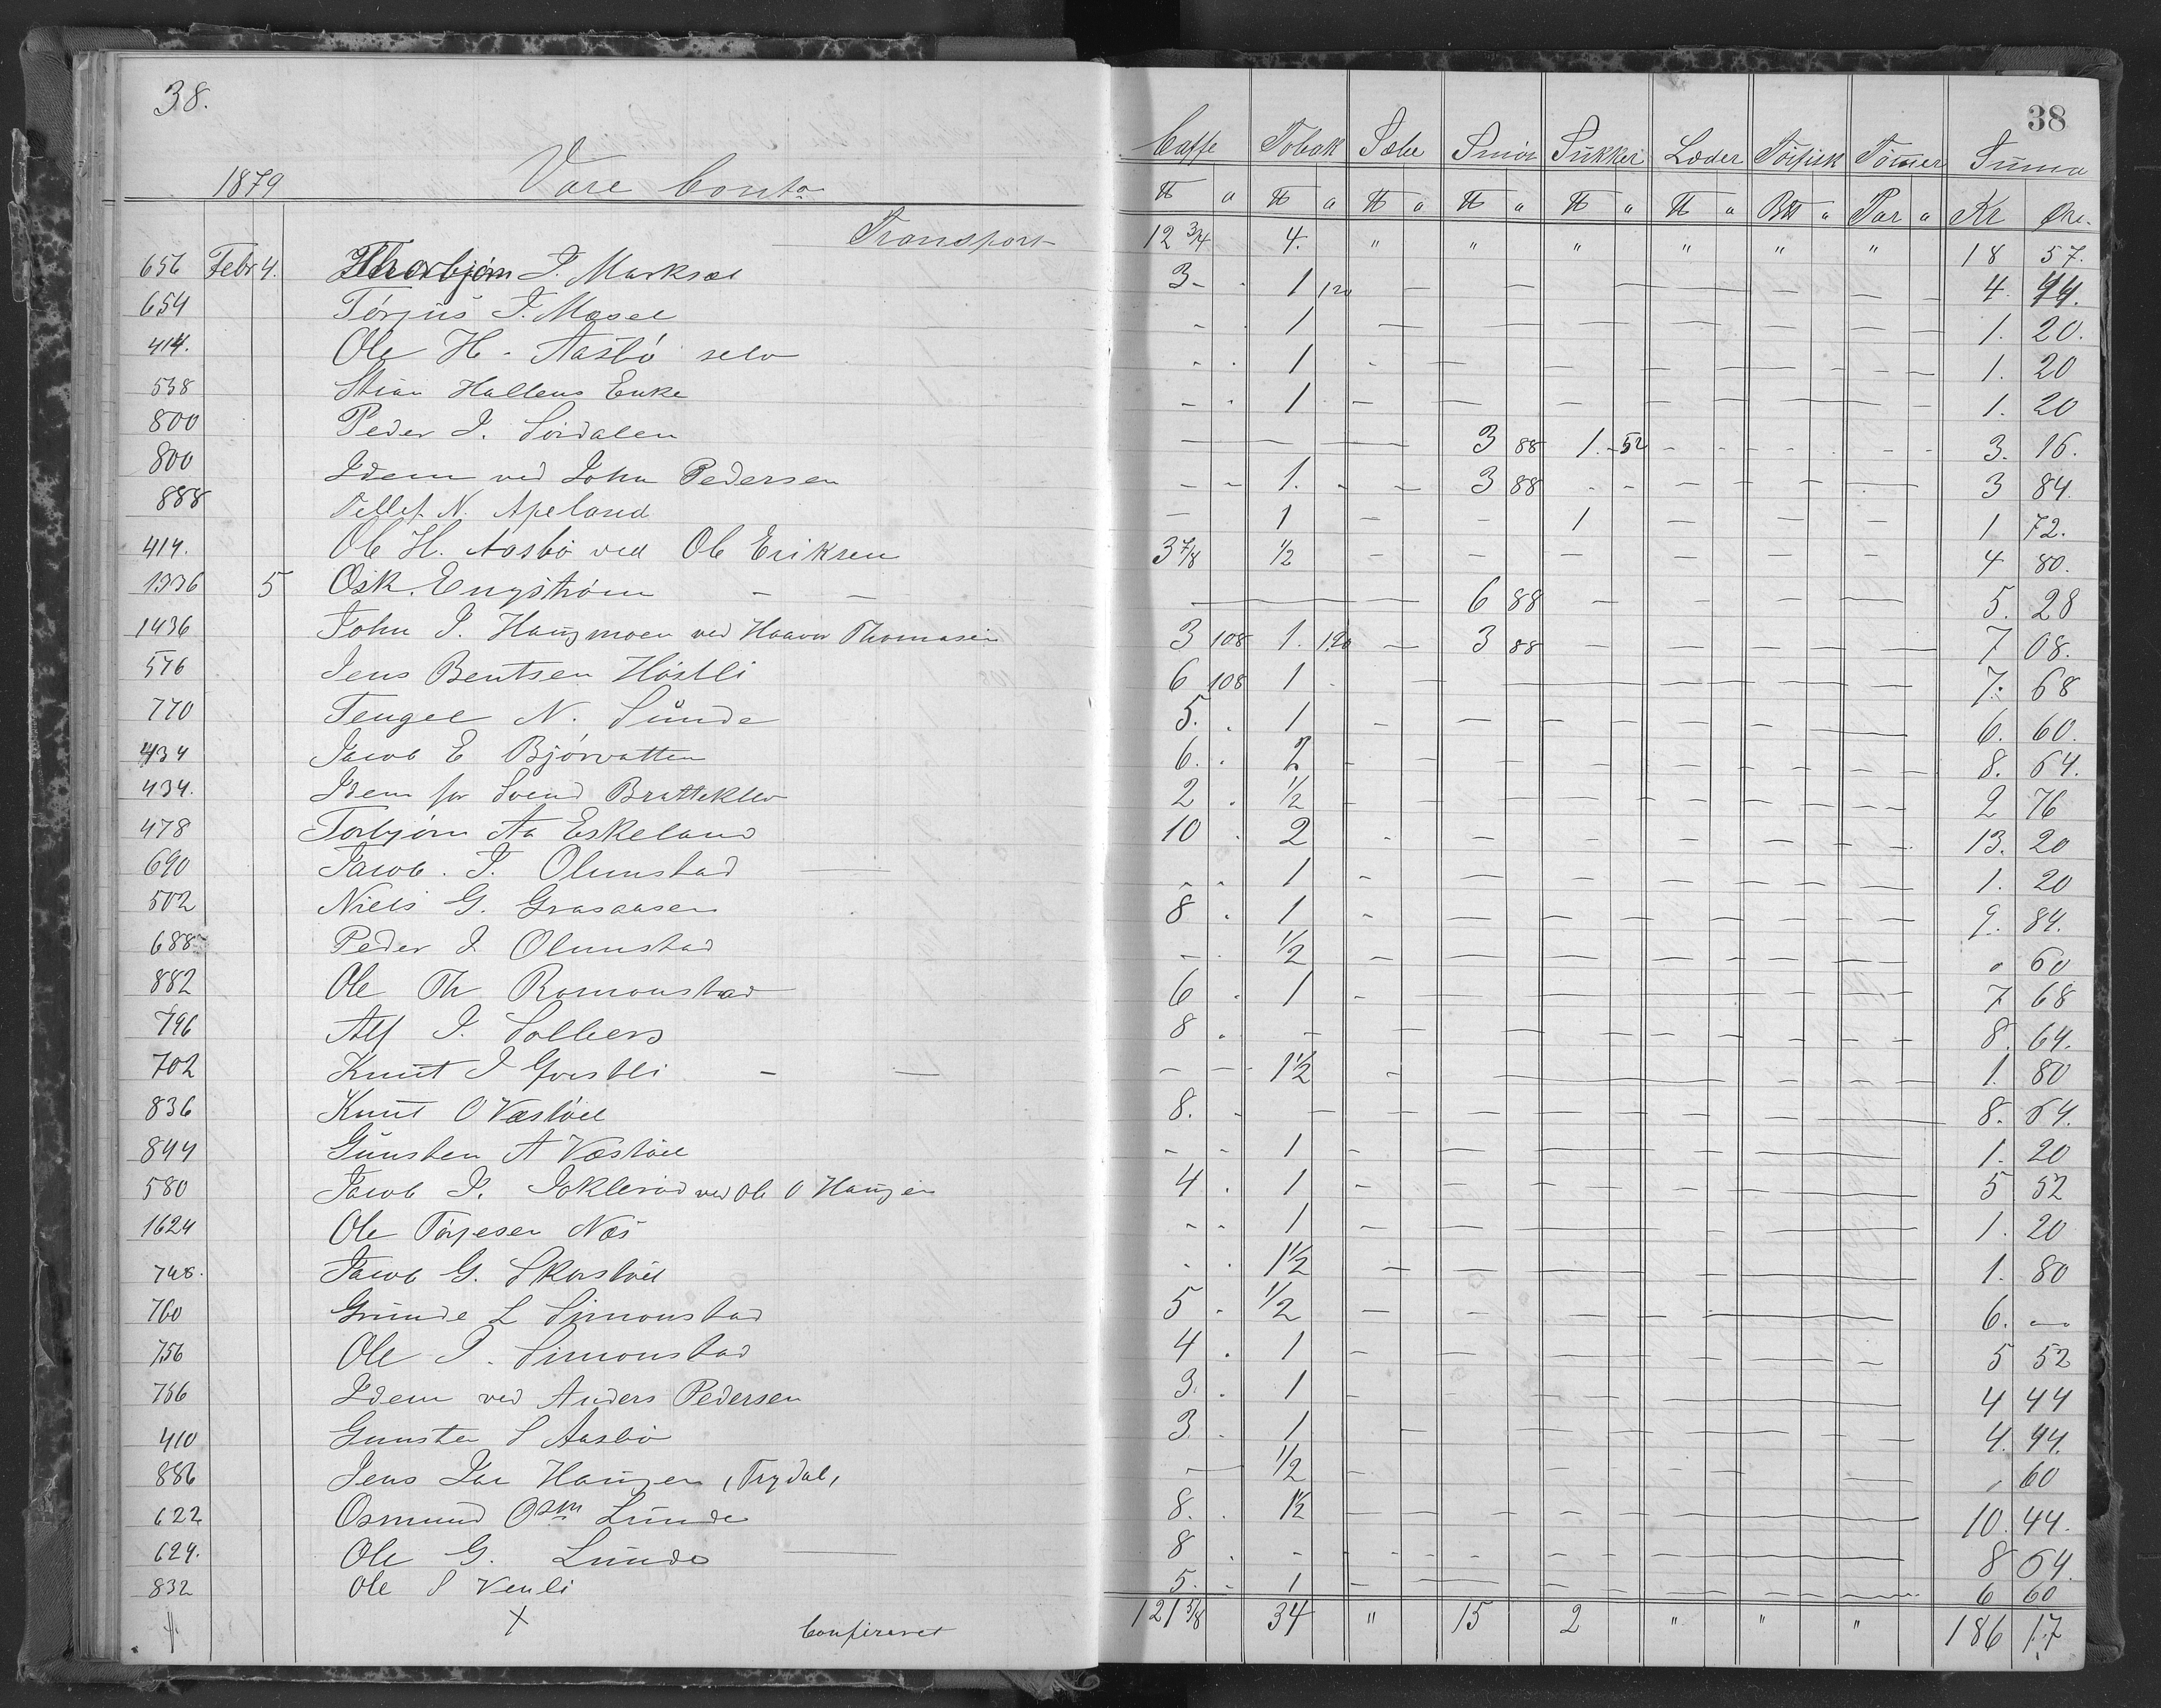 38.
38
1879 Vare Conto
Caffe Tobak Sæbe Smör Sukker Læder Törfisk Tömmer Suma
℔ a ℔ a ℔ a ℔ a ℔ a ℔ a B℔ a Par a Kr Öre.
Transport 12 3/4 4. " " " " " " 18 57.
656 Febr 4. Thorbjörn J. Marksæt 3 - - 1 120 — — — — — — 4. 44.
654 Törjus J. Mosee - - 1 — — — — — — 1. 20.
414. Ole H. Aasbö selv - - 1 - — — — — — 1. 20
538 Stian Hallens Enke - - 1 - — — — — — 1. 20
800 Peder J. Sördalen — — 3 88 1. 52 - - - 3. 16.
800 Idem ved John Pedersen - - 1. - - 3 88 - - — — — 3 84.
888 Tellef N. Apeland — 1 — - 1 — - — 1 72.
414. Ole H. Aasbö ved Ole Eriksen 3 7/8 1/2 — — — — — — 4 80.
1336 5 Osk. Engström - — — 6 88 — - — — 5. 28
1436 John J. Haugmoen ved Haavor Thomasen 3 108 1. 120 — 3 88 — — — — 7 08.
576 Jens Bentsen Höstli 6 108 1 - — — — — — 7. 68
770 Tengel N. Sunde 5. . 1 - — — — — — 6. 60.
434 Jacob E Björvatten 6. . 2 - — — — — — 8. 64.
434. Idem for Svend Bratteklev 2 . 1/2 - — — — — — 2 76
478 Torbjörn Aa Eskeland 10 . 2 - — — — — — 13. 20
690 Jacob. T. Olimstad — - - 1 - — — — — — 1. 20
502 Niels G. Grasaasen 8 . 1 - — — — — — 9. 84.
688 Peder J. Olimstad - . 1/2 — — — — — — " 60
882 Ole Th Romonstad 6 . 1 - — — — — — 7 68
796 Alf J. Solberg 8 . - — — — — — — 8. 64.
702 Knut J Govstli - — - — 1 1/2 - — — — — — 1. 80
836 Knut O Væstöel 8. - — — — — — — — 8. 64.
844 Gunsten A Væstöel - - 1 - — — — — — 1. 20
580 Jacob J. Iokleröd ved Ole O Haugen 4 . 1 - — — — — — 5 52
1624 Ole Törjesen Næs - - 1 — — — — — — 1. 20
748. Jacob G. Skarstöel - . 1 1/2 — — — — — — 1. 80
760 Grunde L Simonstad 5 . 1/2 — — — — — — 6. —
756 Ole J. Simonstad 4 . 1 - — — — — — 5 52
756 Idem ved Anders Pedersen 3. . 1 - — — — — — 4 44
410 Gunsten S Aasbö 3 . 1 — — — — — — 4. 44.
886 Jens Jac Haugen (Trydal) — 1/2 — — — — — — " 60
622 Osmund Osm Lunde 8. . 1 1/2 — — — — — — 10. 44.
624. Ole G. Lunde — 8 . - - - — — — — 8 64.
832 Ole S Venli 5. - 1 - — — — — — 6 60
X Confereret 121 5/8 34 " 15 2 " " " 186 17